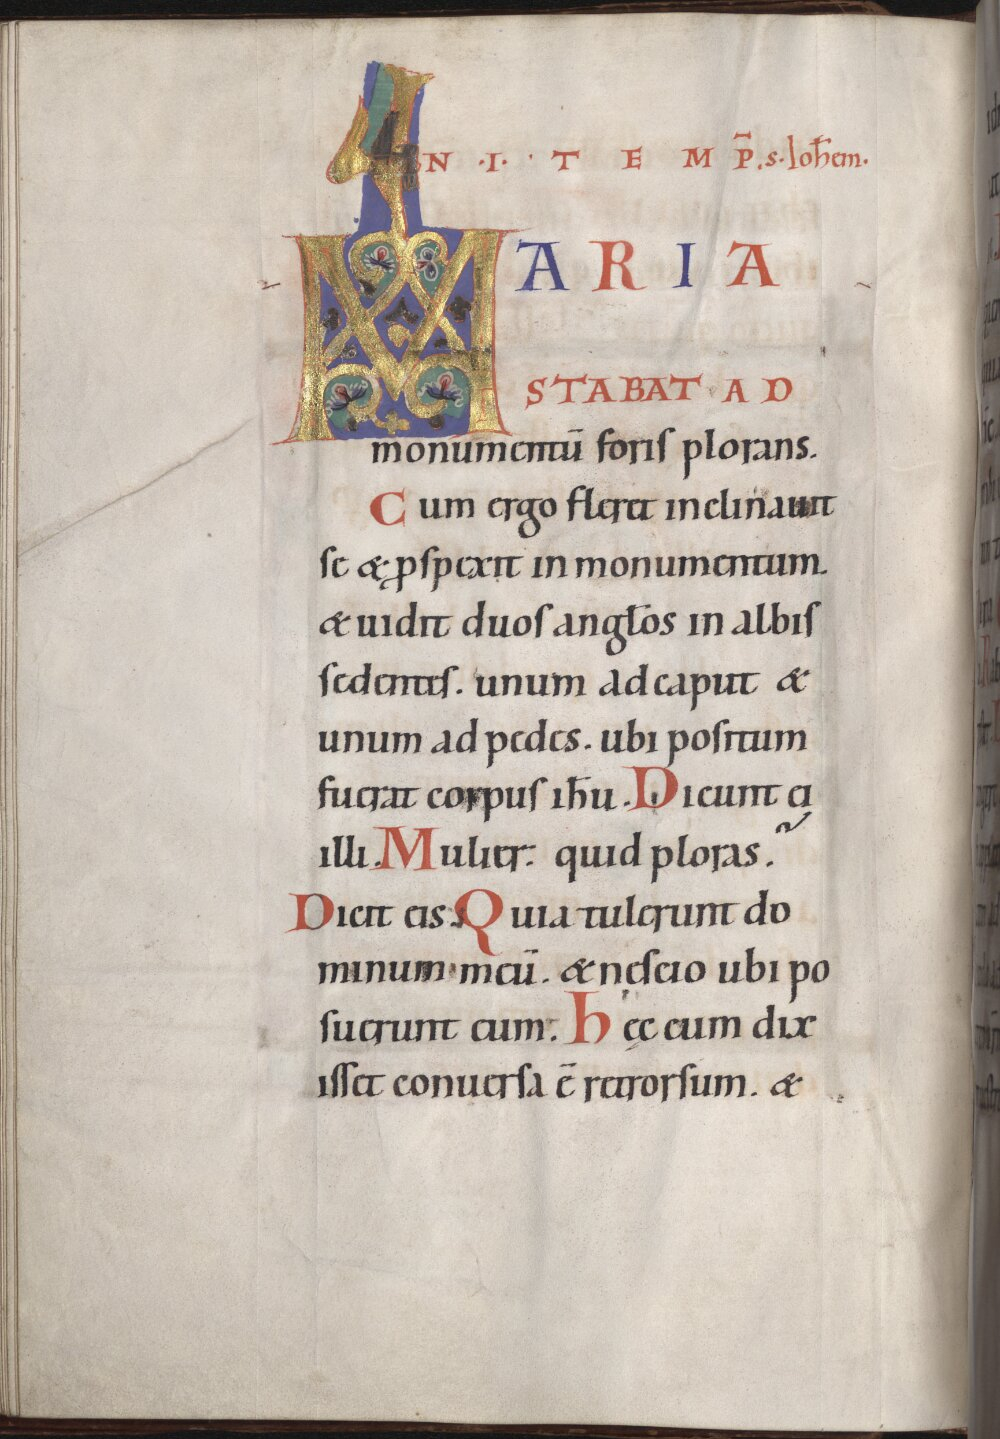 IN · I · T E M P̄. S. Ioh̄em.
MARIA
STABAT AD
monumentū foris plorans.
Cum ergo fleret inclinauit
se & p̱spexit in monumentum.
& uidit duos angl̄os in albis
sedentes. unum ad caput &
unum ad pedes. ubi positum
fuerat corpus ih̄u. Dicunt ei
illi. Mulier: quid ploras.
Dicit eis. Quia tulerunt do
minum meū. & nescio ubi po
suerunt eum. Hęc cum dix
isset conuersa ē retrorsum. &